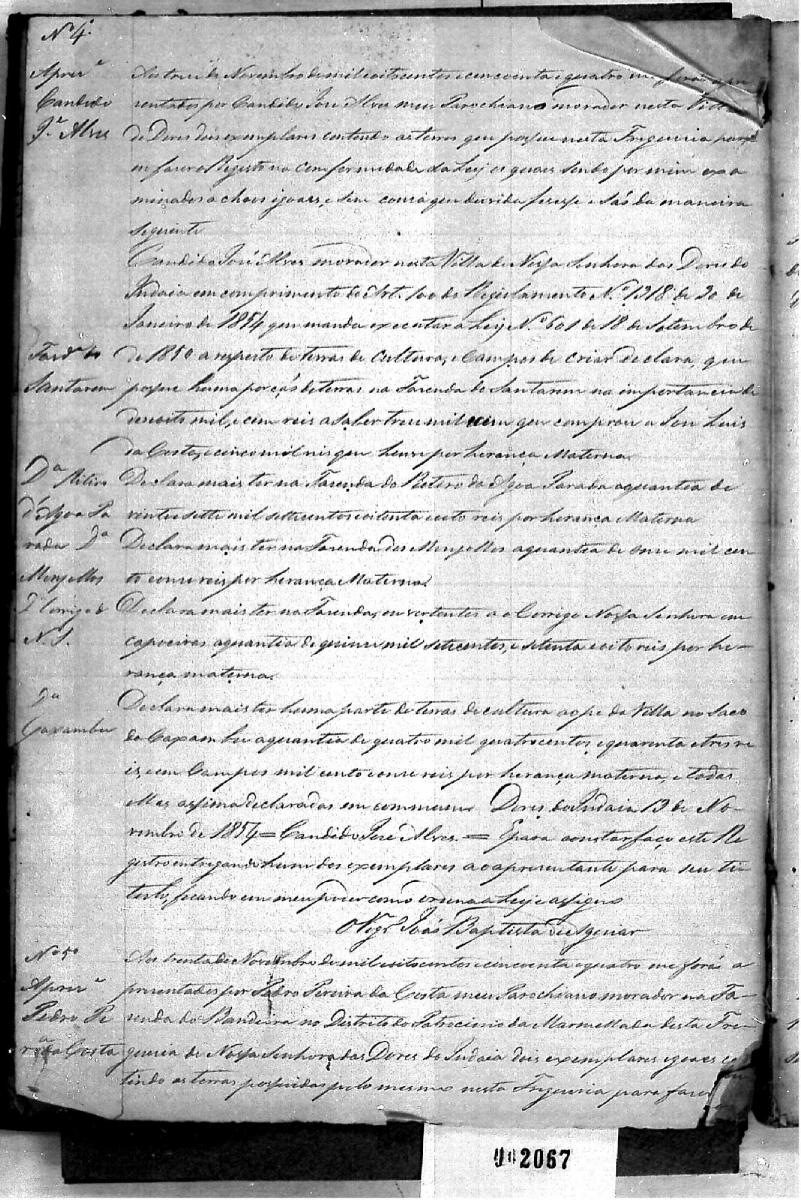 Nº 4º
Aprezª
Candido
Jª Alves
Aos treze de Novembro de mil e oitocentos e cincoenta e quatro me forão apre
zentados por Candido José Alves meu Parochiano morador nesta Villa
de Dores dois exemplares contendo as terras que possue nesta Freguezia para
eu fazer o Registo na comformidade da Lei os quaes sendo por mim exa
minados achei iguaes, e sem couza que duvida fizesse e são da maneira
seguinte
Candido José Alves morador nesta Villa de Nossa Senhora das Dores do
Indaia em comprimento do Art. 100 do Regislamento Nº 1318 de 30 de
Janeiro de 1854 que manda executar a Lei Nº 601 de 18 de Setembro de
Fazdª de
Santarem
de 1850 a respeito de terras de Cultura, e Campos de criar declara, que
possue huma porção de terras na Fazenda de Santarem na importancia de
dezoito mil, e cem reis a saber treze mil e cem que comprou a José Luis
da Costa, e cinco mil reis que houve por herança Materna.
Dª Retiro
d'Agoa Pa
rada
Declara mais ter na Fazenda do Retiro da Agoa Parada a quantia de
vinte e sette mil settecentos e oitenta e oito reis por herança Materna
Dª
Monjollos
Declara mais ter na Fazenda dos Monjollos a quantia de onze mil cen
to e onze reis por herança Materna.
Dª Corrigo de
N. S.
Declara mais ter na Fazenda, em vertentes a o Corrigo Nossa Senhora em
capoeiras a quantia de quinze mil setecentos, e setenta e oito reis por he
rança materna.
Dª
Caxambu
Declara mais ter huma parte de terras de cultura ao pe da Villa no Saco
do Caxambu a quantia de quatro mil quatrocentos, e quarenta e tres re
is, e em Campos mil cento e onze reis por herança materna, e todas
ellas assima declaradas em commum Dores do Indaia 13 de No
vembro de 1854 = Candido José Alves. = E para constar faço este Re
gistro entregando hum dos exemplares ao aprezentante para seu ti
tulo, ficando em meu poder como ordena a Lei e assigno
O Vigrº João Baptista de Aguiar
Nº 5º
Aprezª
Pedro Pe
rª da Costa
Aos trenta de Novembro de mil e oitocentos e cincoenta e quatro me forão a
prezentados por Pedro Pereira da Costa meu Parochiano morador na Fa
zenda do Bandeira no Distrito do Patrocinio da Marmellada desta Fre
guezia de Nossa Senhora das Dores do Indaia dois exemplares iguaes co
tendo as terras possuidas pelo mesmo nesta Freguezia para fazer
002067